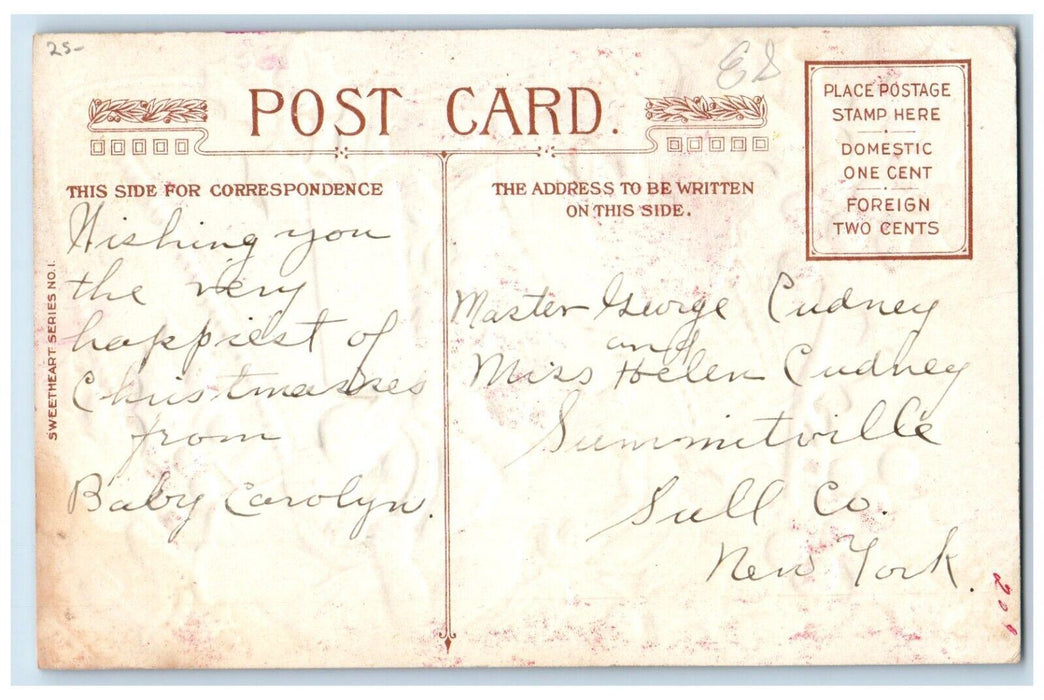 25-
ES
POST CARD.
PLACE POSTAGE
STAMP HERE
DOMESTIC
ONE CENT
FOREIGN
TWO CENTS
THIS SIDE FOR CORRESPONDENCE
THE ADDRESS TO BE WRITTEN
ON THIS SIDE.
SWEETHEART SERIES NO. 1.
Wishing you
the very
happiest of
Christmasses
from
Baby Carolyn.
Master George Cudney
and
Miss Helen Cudney
Summitville
Sull Co.
New York.